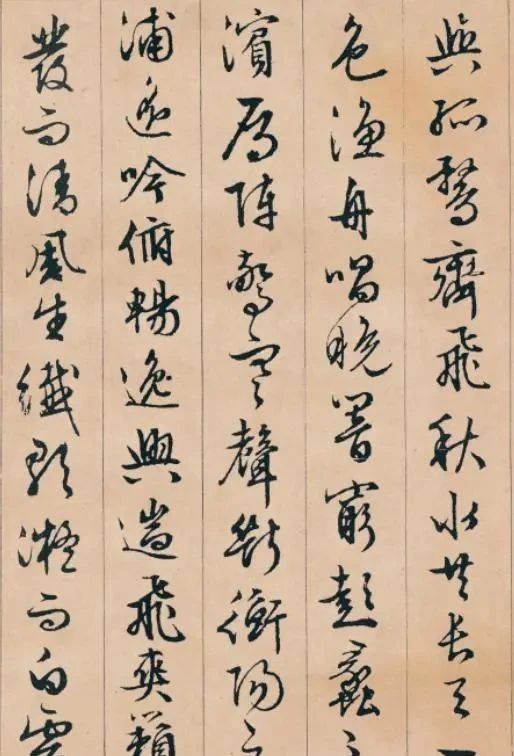 與孤鶩齊飛秋水共長天一
色漁舟唱晚響窮彭蠡之
濱雁陣驚寒聲斷衡陽之
浦遙吟俯暢逸興遄飛爽籟
發而清風生纖歌凝而白雲